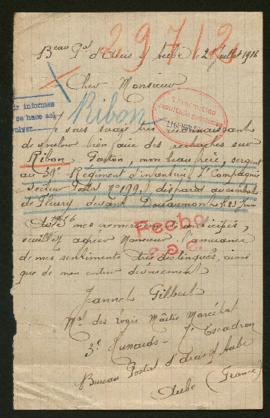 29712
Bau Pal d'Arcis s/ Aube le 2 juillet 1916
Cher Monsieur
Ribon
Je vous serais très reconnaissant
de vouloir bien faire des recherches sur
Ribon, Gaston, mon beau frère, sergent
au Régiment d'infanterie Compagnie
Secteur Postal N° 199, disparu au combat
de Fleury devant Douaumont le 23 Juin
1916
Avec mes remerciements anticipés,
veuillez agréer Monsieur l'assurance
de mes sentiments très distingués, ainsi
que de mon entier dévouement
Jeannel Gilbert
Mal des Logis Maître Maréchal
3e Hussards - Escadron
Bureau Postal d'Arcis s/ Aube
Aube (France)